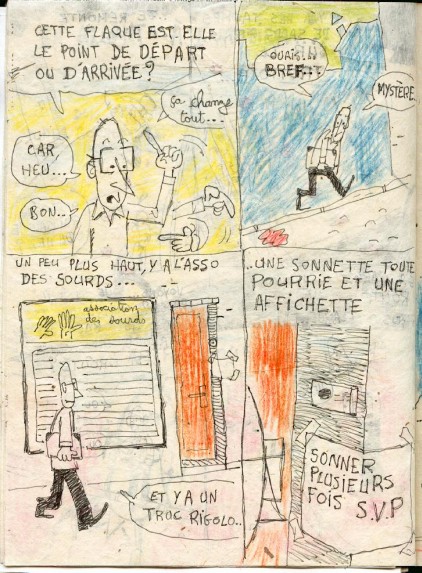 CETTE FLAQUE EST-ELLE
LE POINT DE DÉPART
OU D'ARRIVÉE?
Ça change
tout...
CAR,
HEU...
BON...
OUAIS...
BREF...
MYSTÈRE..
UN PEU PLUS HAUT, Y A L'ASSO
DES SOURDS...
association
des sourds
ET Y A UN
TRUC RIGOLO..
..UNE SONNETTE TOUTE
POURRIE ET UNE
AFFICHETTE
SONNER
PLUSIEURS
FOIS
S.V.P